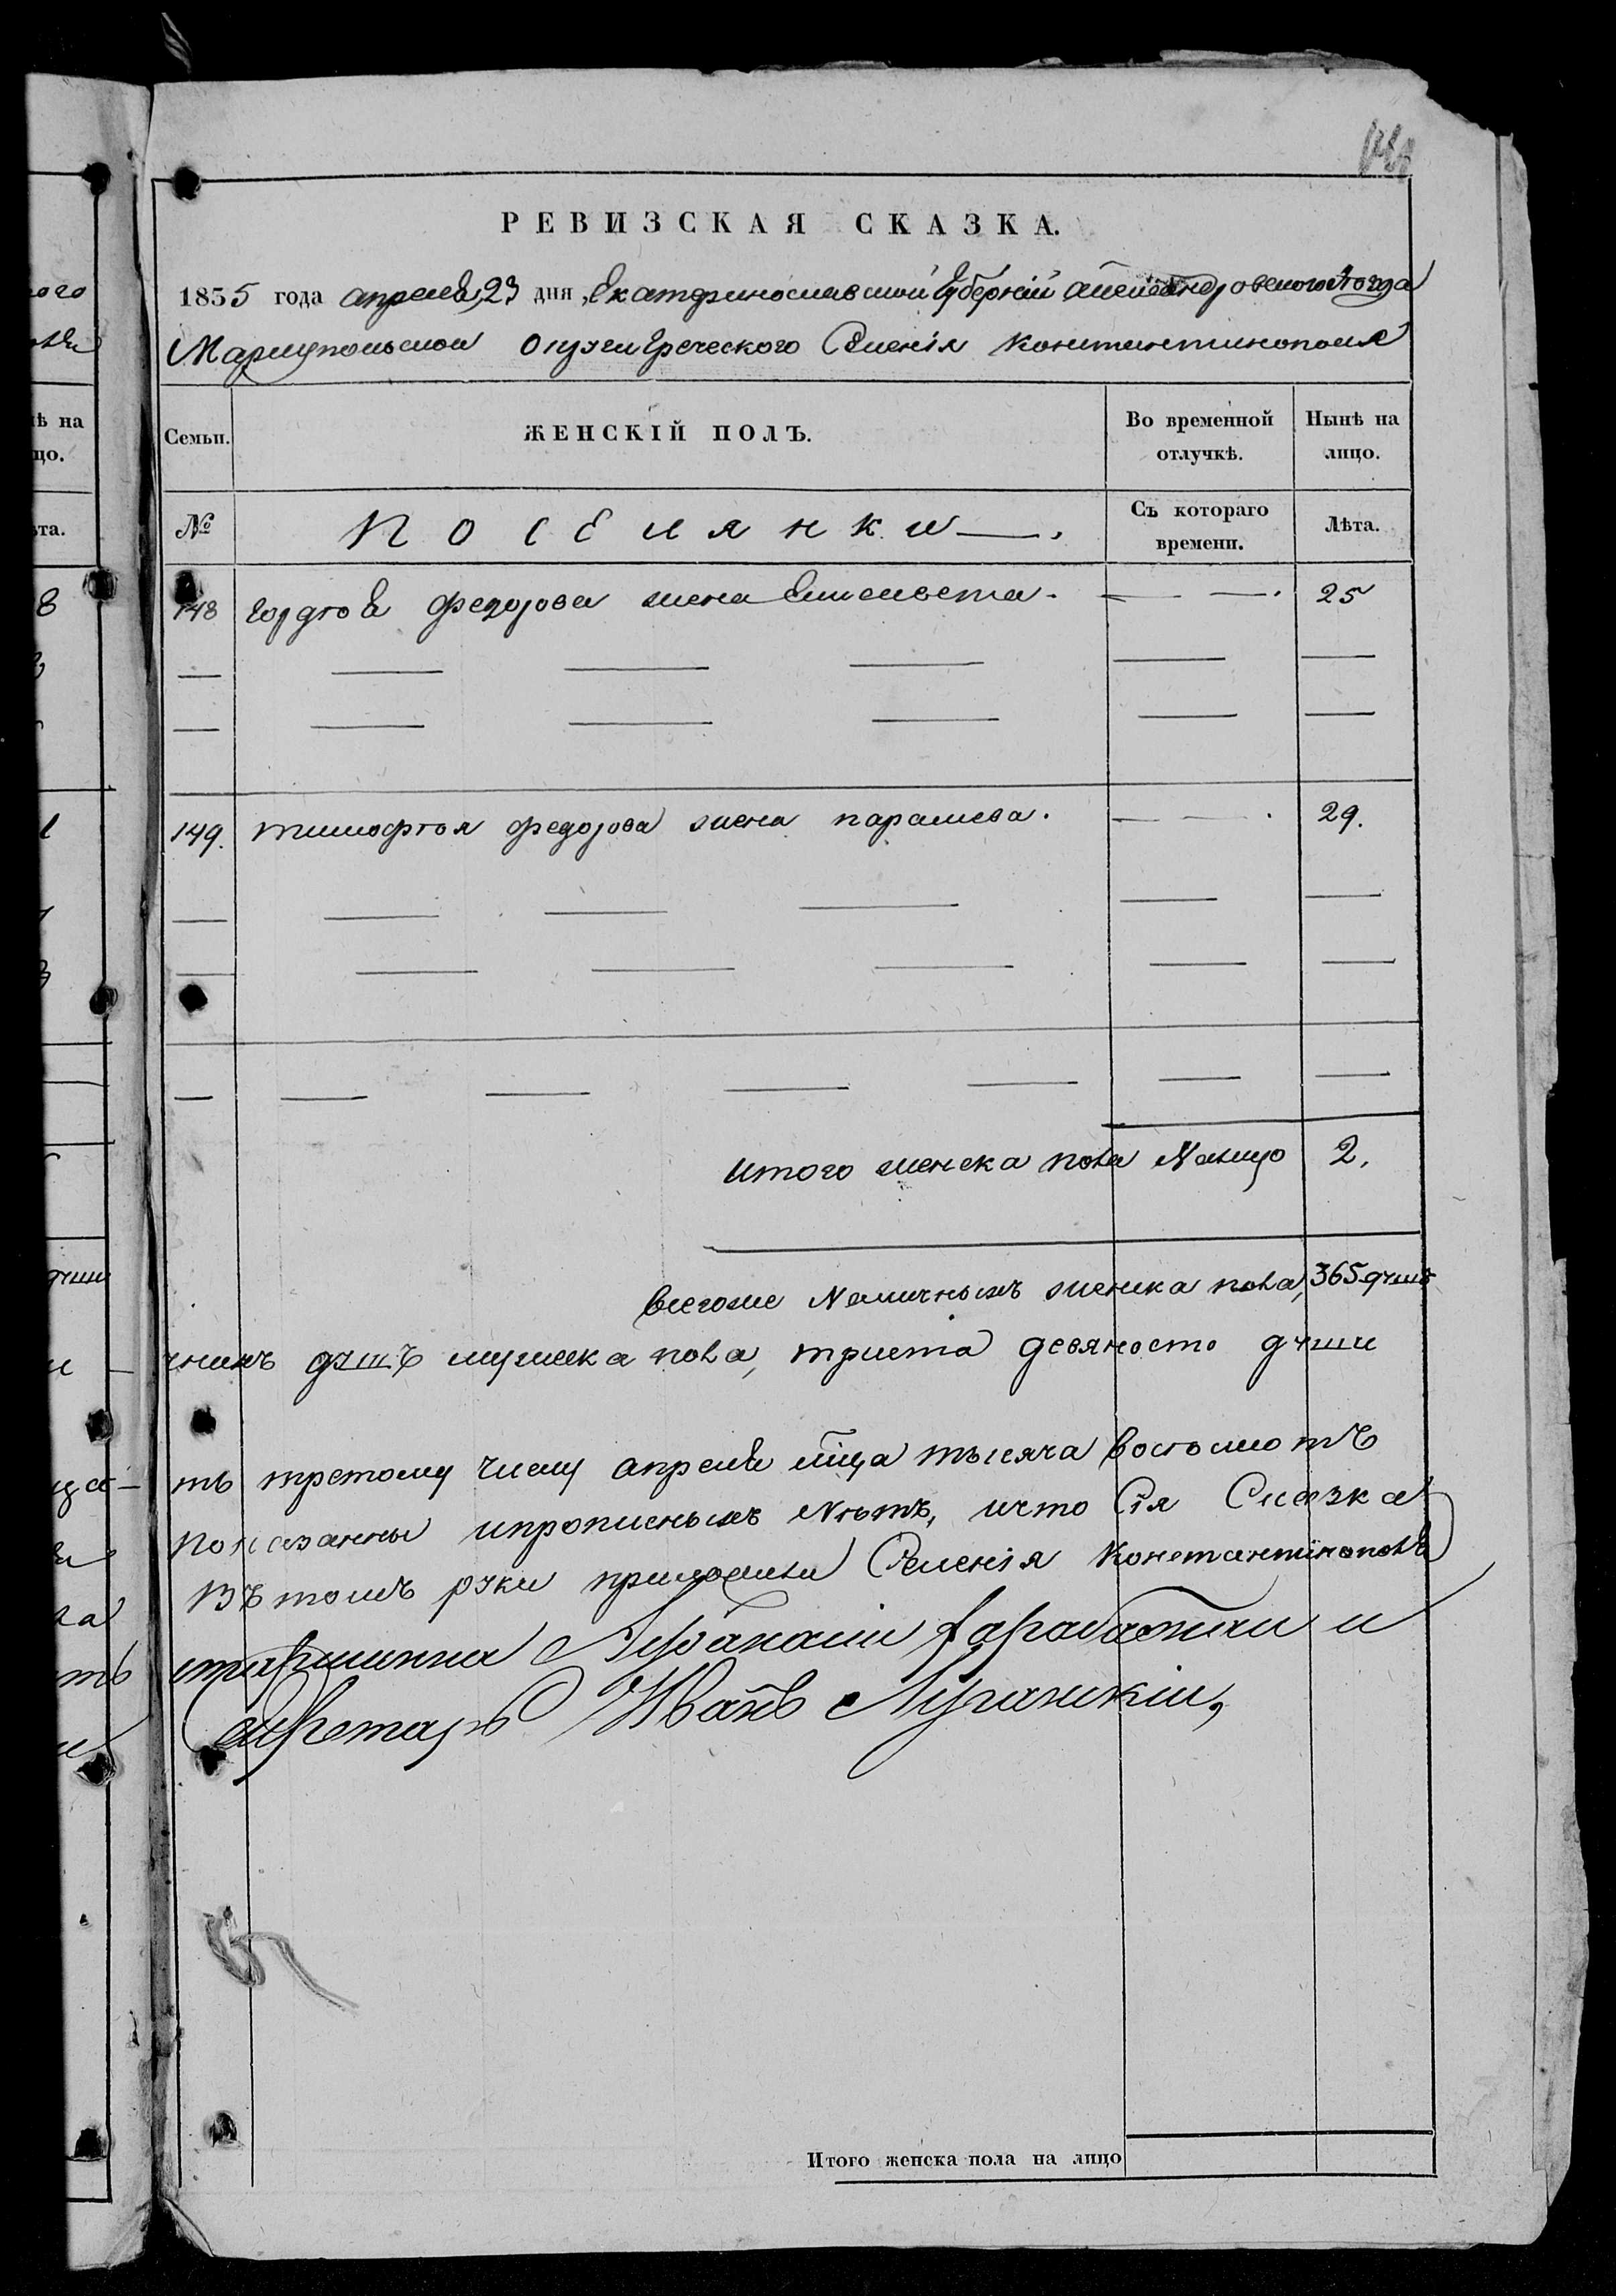 РЕВИЗСКАЯ СКАЗКА.
1835 года апреля 23 дня, Екатеринославской Губернiи Александровского уезда
Мариупольской округи Греческого Селенiя Константинополя
Семьи.
ЖЕНСКІЙ ПОЛЪ.
Во временной отлучкѣ.
Нынѣ на лицо.
№
Поселянки.
Съ котораго времени.
Лѣта.
148 гордѣя федорова жена Елисавета. 25
149. тимофѣя федорова жена параскева. 29.
итого женска пола Налицо 2.
всегоже Наличныхъ женска пола, 365 душъ
душъ мужеска пола, триста девяносто души
ть третому числу апреля мца тысяча восомсотъ
показанны ипрописныхъ Нѣтъ, ичто Сiя Сказка
Въ томъ руки приложили Селенiя Константинополя
старшинна
Секретарь Иванъ Луганскiи,
Итого женска пола на лицо
ѣ на
цо.
ѣта.